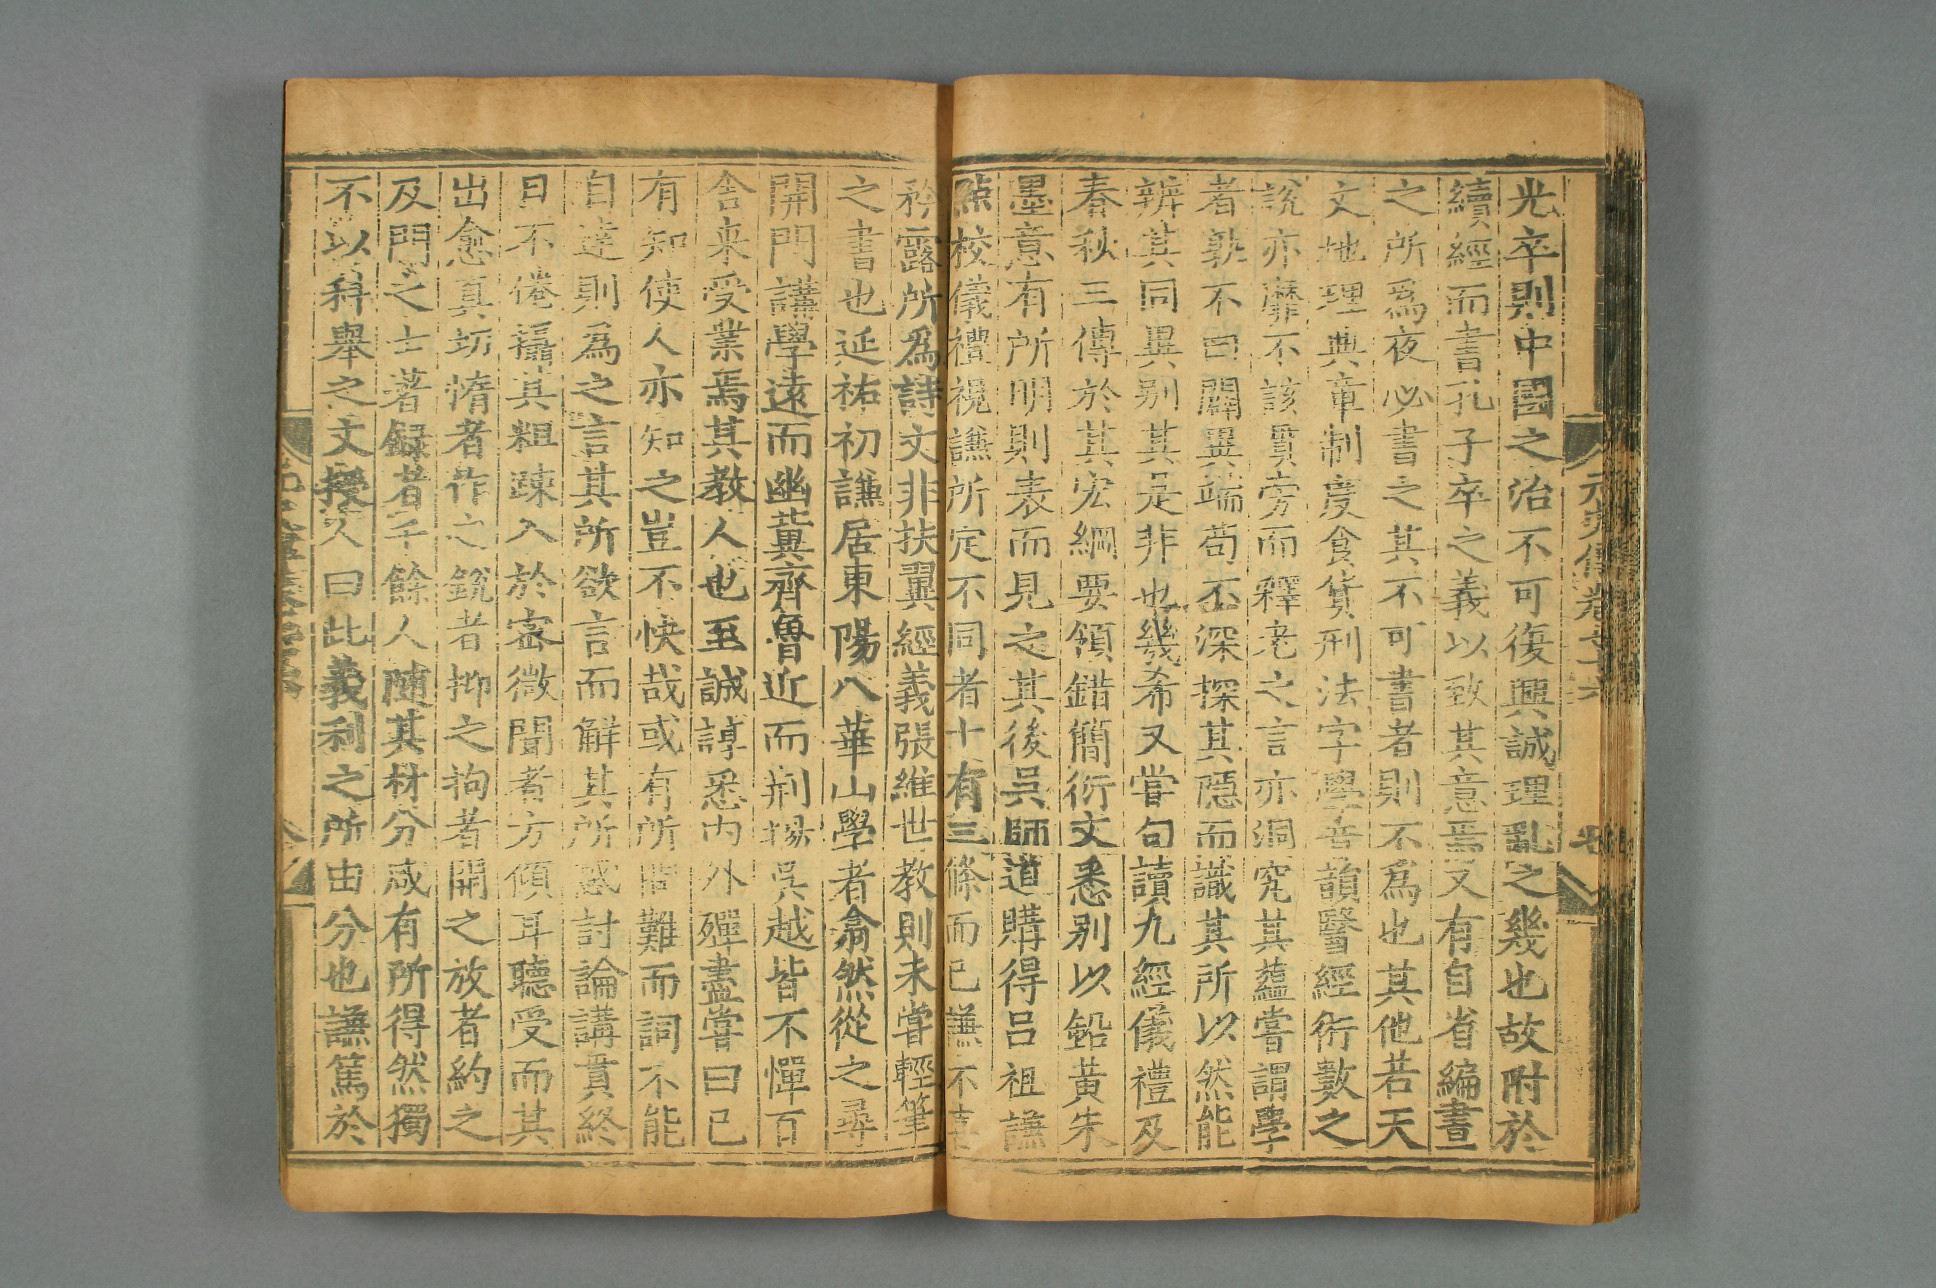 光卒則中國之治不可復興誠理亂之幾也故附於
續經而書孔子卒之義以致其意焉又有自省編晝
之所爲夜必書之其不可書者則不爲也其他若天
文地理典章制度食貨刑法字學音韻醫經術數之
說亦靡不該貫旁而釋老之言亦洞究其蘊嘗謂學
者孰不曰闢異端苟不深探其隱而識其所以然能
辨其同異别其是非也幾希又嘗句讀九經儀禮及
春秋三傳於其宏綱要領錯簡衍文悉别以鉛黃朱
墨意有所明則表而見之其後吳師道購得呂祖謙
點校儀禮視謙所定不同者十有三條而已謙不喜
矜露所爲詩文非扶翼經義張維世教則未嘗輕筆
之書也延祐初謙居東陽八華山學者翕然從之尋
開門講學遠而幽冀齊魯近而荆揚吳越皆不憚百
舍来受業焉其教人也至誠諄悉内外殫盡嘗曰已
有知使人亦知之豈不快哉或有所問難而詞不能
自達則爲之言其所欲言而解其所惑討論講貫終
日不倦攝其粗疎入於密微聞者方傾耳聽受而其
出愈真㘬惰者作之銳者抑之拘者開之放者約之
及門之士著録者千餘人隨其材分咸有所得然獨
不以科舉之文授人曰此義利之所由分也謙篤於
元史傳卷七十六